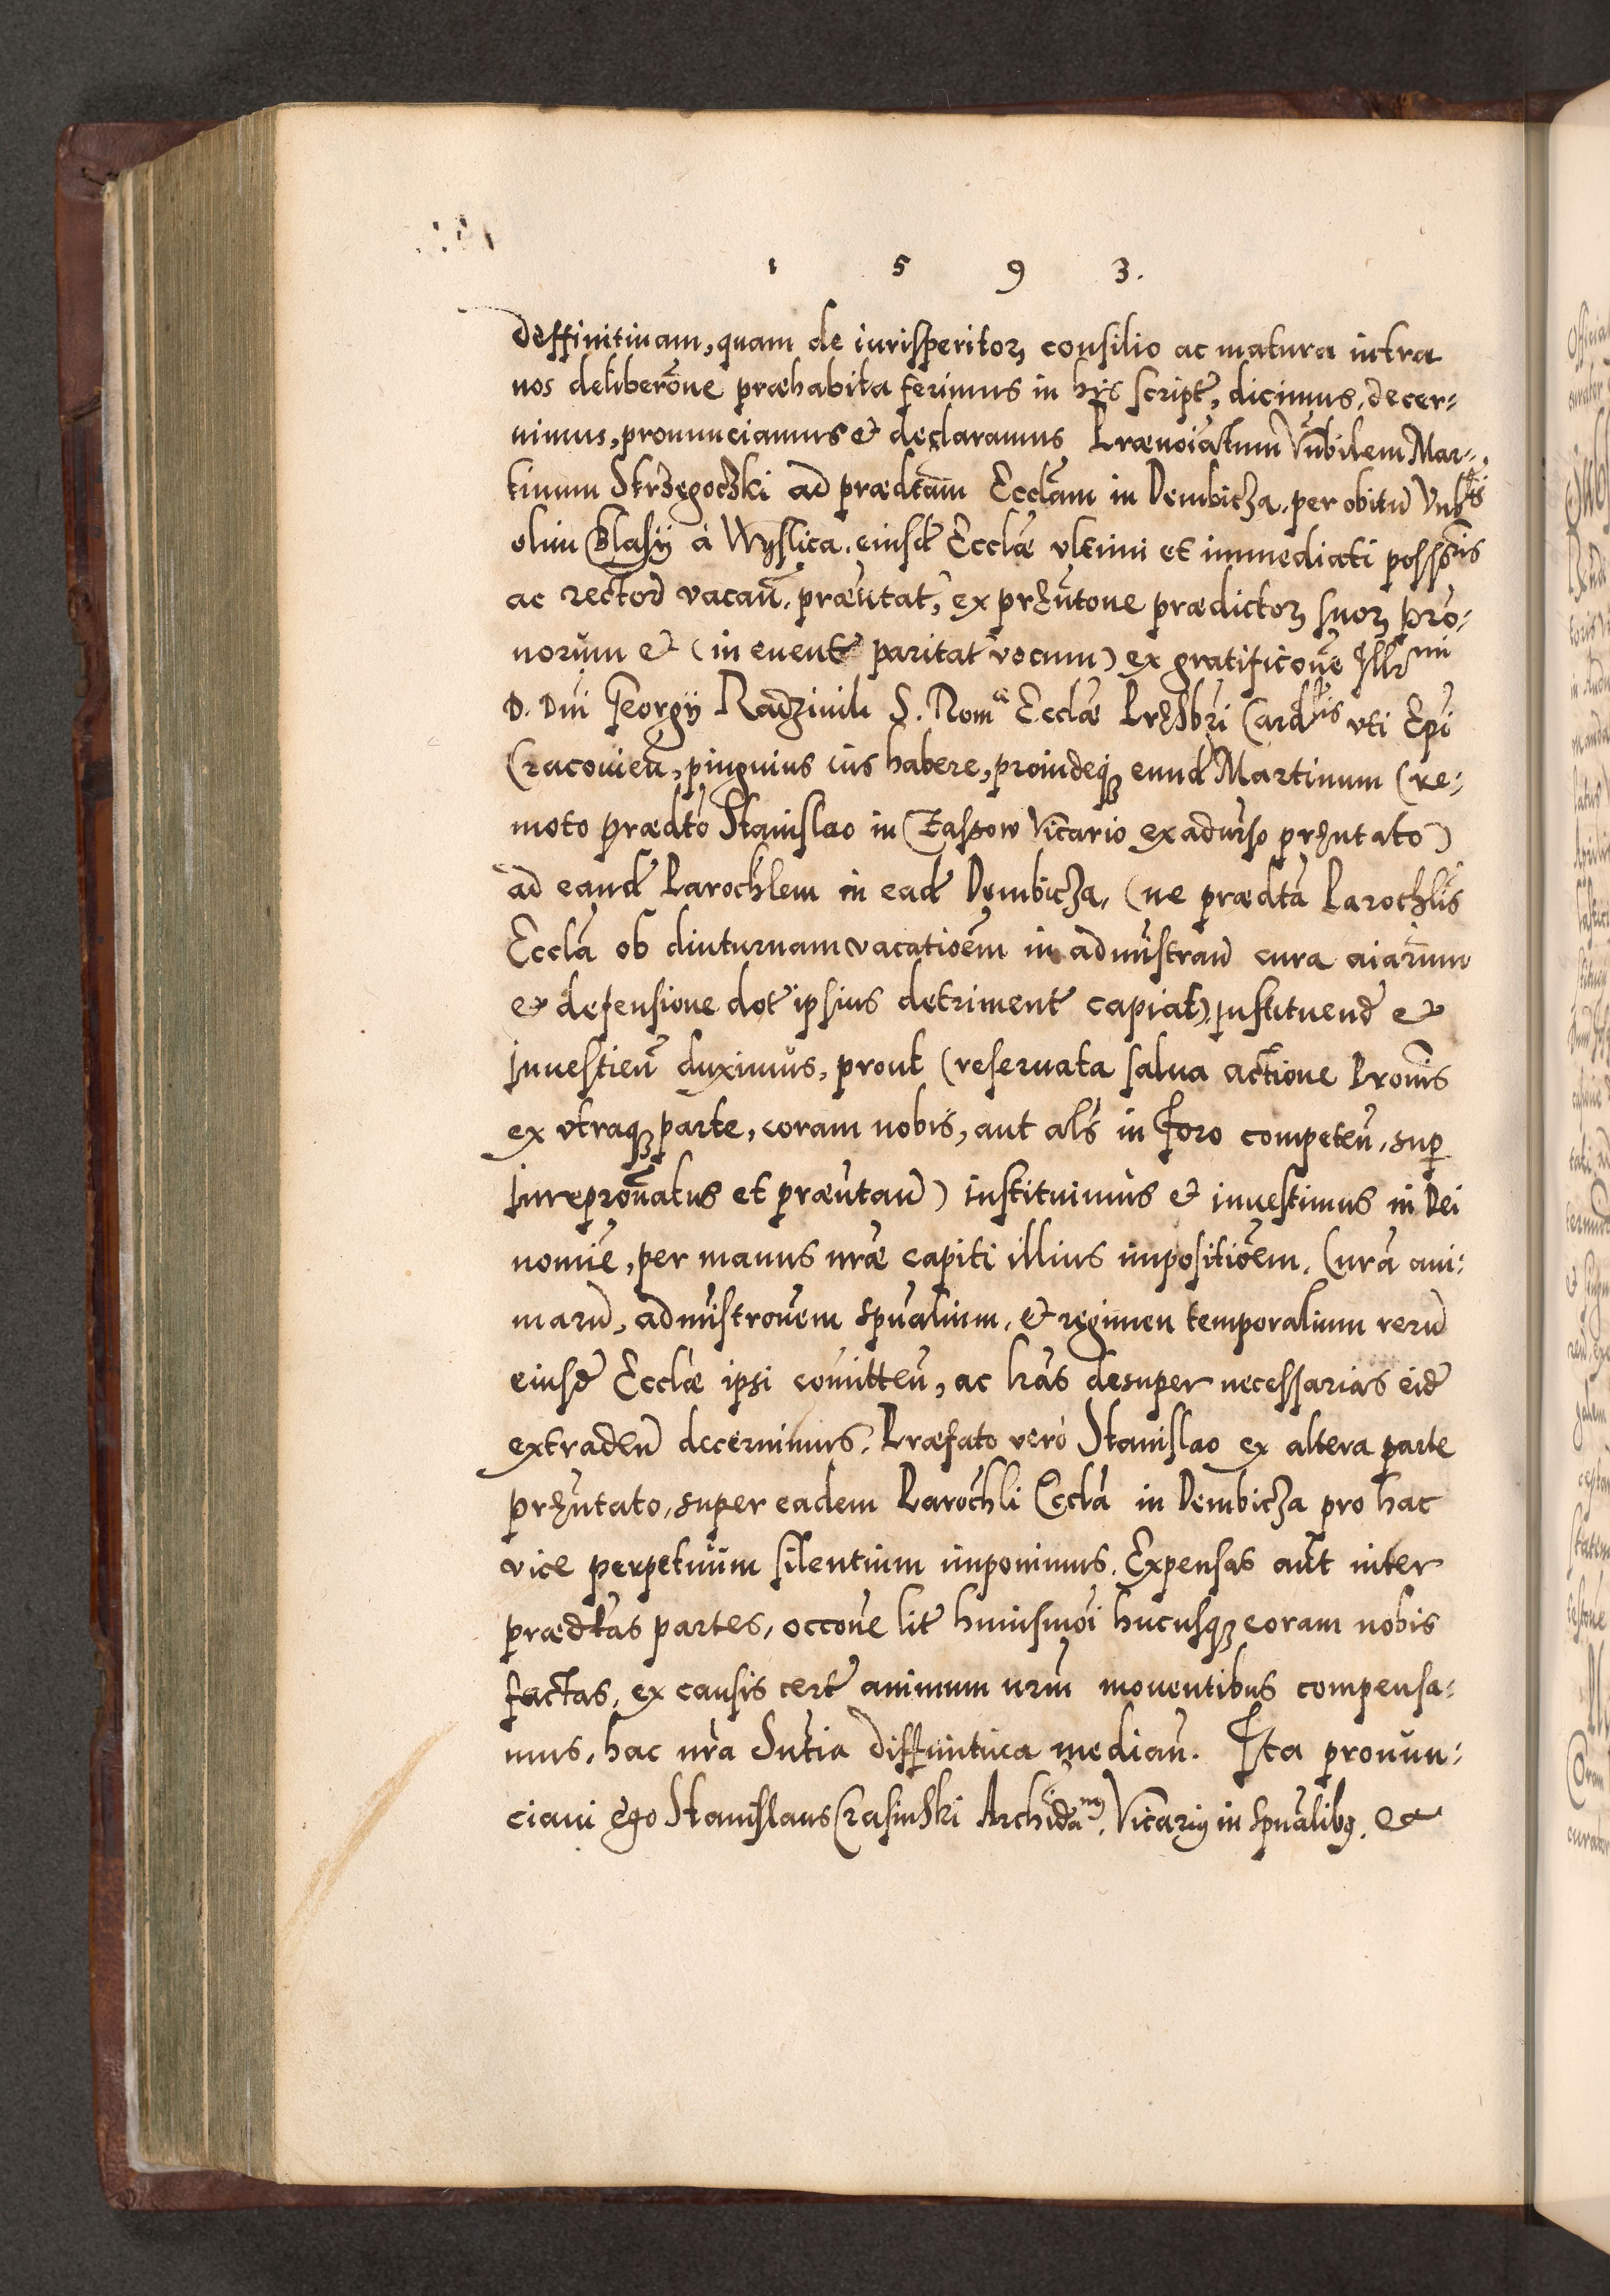 1 5 9 3.
deffinitiuam, quam de iurisperitorꝫ consilio ac matura intra
nos deliberõne præhabita ferimus in hijs script, dicimus, decer-
nimus, pronunciamus et declaramus Prænoiatum Vnbilem Mar-
tinum Skrzęgoczki ad prædtam Ecclam in Dembicza, per obitũ Vnblis
olim Blasÿ à Wyslica, eiusd Ecclæ vltimi et immediati possoris
ac rector vacañ, præntat, ex przntone prædictorꝫ suorꝫ pro-
norum et (in euent paritat vocum) ex gratificone Illrmi
D. Dni Georgÿ Radziuili S. Romae Ecclæ Przsbri Cardlis vti Epi
Cracouieñ, pinguius ius habere, proindeqꝫ eund Martinum (re-
moto prædto Stanislao in Tassow Vicario exaduerso przntato)
ad eand Parochlem in ead Dembicza, (ne prædta Parochlis
Eccla ob diuturnam vacatioem in admistrañ cura aiarum
et defensione dot ipsius detriment capiat) instituend et
inuestieñ duximus, prout (reseruata salua actione Pronis
ex vtraqꝫ parte, coram nobis, aut als in foro competeñ, super
Iurepronatus et præntañ) instituimus et inuestimus in Dei
nomie, per manus nræ capiti illius impositioem, Curã ani-
marũ, admistronem spualium, et regimen temporalium rerũ
eiusd Ecclæ ipsi comitteñ, ac lras desuper necessarias eid
extradeñ decernimus. Præfato vero Stanislao ex altera parte
przntato, super eadem Parochli Eccla in Dembicza pro hac
vice perpetuum silentium imponimus. Expensas aut inter
prædtas partes, occone lit huiusmoi hucusqꝫ coram nobis
factas, ex causis cert animum nrm mouentibus compensa-
mus, hac nra Sntia diffinitiua mediañ. Ita pronun-
ciaui ego Stanislaus Crasinski Archidanus, Vicarius in spualibꝰ, et